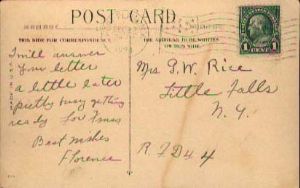 POST CARD
THIS SIDE FOR CORRESPONDENCE
I will answer
Your letter
a little later
pretty busy getting
ready for Xmas
Best wishes
Florence
THE ADDRESS TO BE WRITTEN
ON THIS SIDE
1 CENT 1
Mrs G. W. Rice
Little Falls
N. Y.
R F D 4